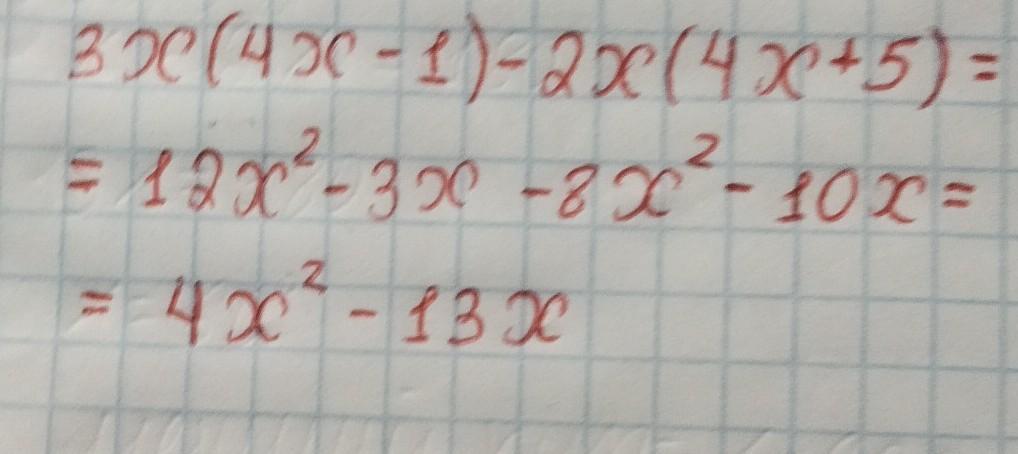 3x(4x-1)-2x(4x+5)=
=12x²-3x-8x²-10x=
=4x²-13x